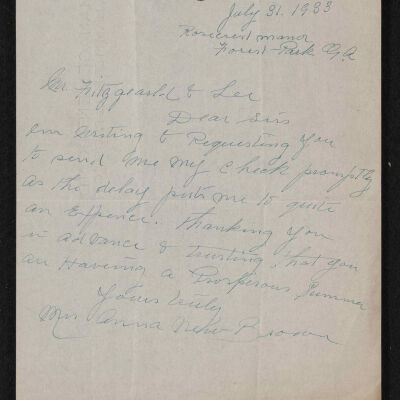 July 31. 1933
Rosecrest manor
Forest-Park G.A
Mr. Fitzgearld & Lee
Dear Sirs
em writing & Requesting you
to send me my check promptly
as the delay puts me to quite
an Expence. Thanking you
in advance & trusting that you
are Having a Prosperous Summer
Yours truly
Mrs Anna Brown